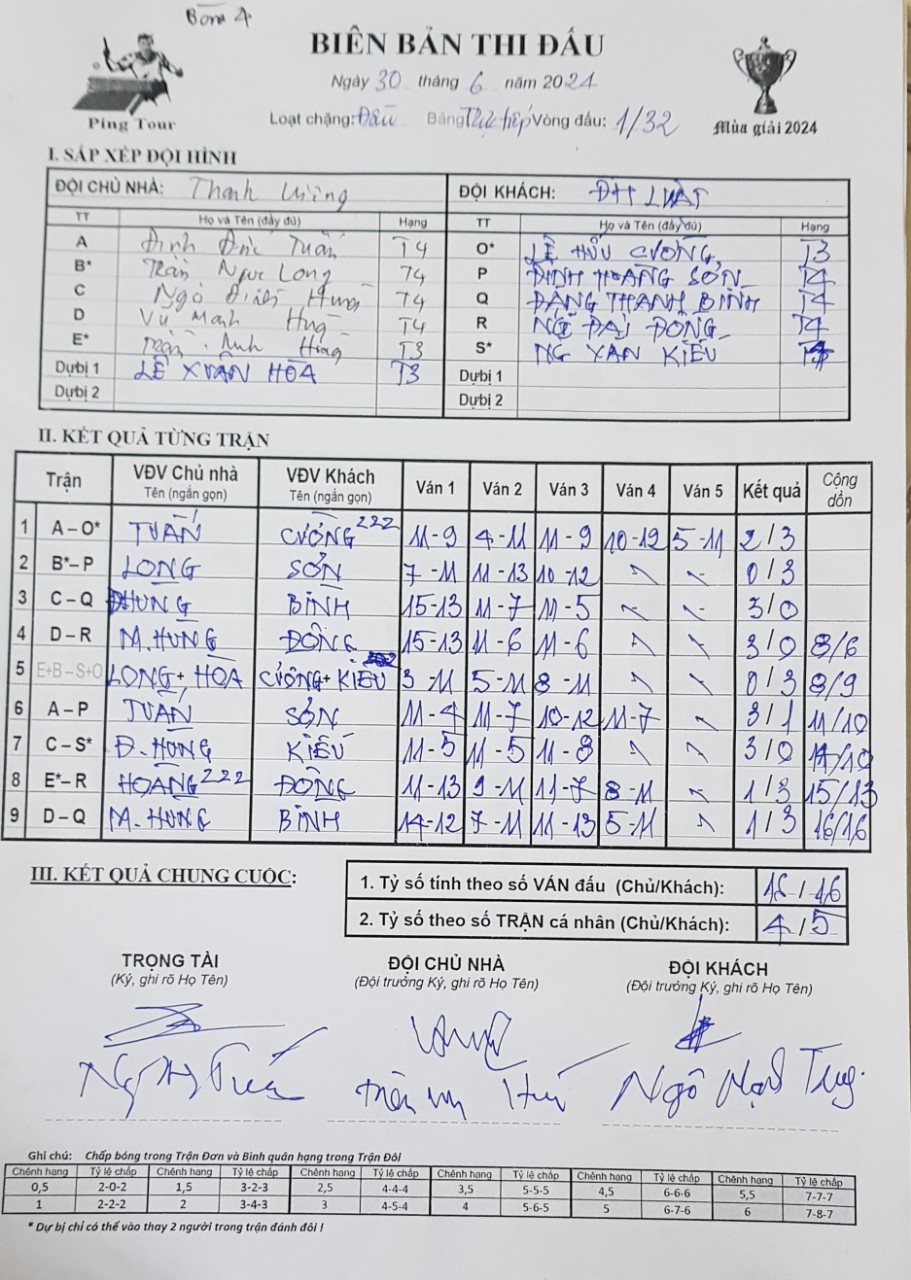 Bàn 4
BIÊN BẢN THI ĐẤU
Ngày 30 tháng 6 năm 2024
Ping Tour
Loạt chặng: Đầu Bảng Trực tiếp Vòng đấu: 1/32
Mùa giải 2024
I. SẮP XẾP ĐỘI HÌNH
ĐỘI CHỦ NHÀ: Thanh ĐỘI KHÁCH: ĐH LUẬT
TT Họ và Tên (đầy đủ) Hạng TT Họ và Tên (đầy đủ) Hạng
A Đinh Đức Tuấn T4 O* LÊ HỮU CƯỜNG T3
B* Trần Ngọc Long T4 P ĐINH HOÀNG SƠN T4
C Ngô Hưng T4 Q ĐẶNG THANH BÌNH T4
D Vũ Mạnh Hùng T4 R NGÔ ĐẠI ĐỒNG T4
E* Trần Anh Hoàng T3 S* NG XAN KIỀU
Dự bị 1 LÊ XUÂN HÒA T3 Dự bị 1
Dự bị 2 Dự bị 2
II. KẾT QUẢ TỪNG TRẬN
Trận VĐV Chủ nhà Tên (ngắn gọn) VĐV Khách Tên (ngắn gọn) Ván 1 Ván 2 Ván 3 Ván 4 Ván 5 Kết quả Cộng dồn
1 A – O* TUẤN CƯỜNG 222 11-9 4-11 11-9 10-12 5-11 2/3
2 B* – P LONG SƠN 7-11 11-13 10-12 0/3
3 C – Q ĐHƯNG BÌNH 15-13 11-7 11-5 3/0
4 D – R M.HÙNG ĐỒNG 15-13 11-6 11-6 3/0 8/6
5 E+B – S+O LONG + HÒA CƯỜNG + KIỀU 3-11 5-11 8-11 0/3 8/9
6 A – P TUẤN SƠN 11-4 11-7 10-12 11-7 3/1 11/10
7 C – S* Đ.HƯNG KIỀU 11-5 11-5 11-8 3/0 14/10
8 E* – R HOÀNG 222 ĐỒNG 11-13 9-11 11-7 8-11 1/3 15/13
9 D – Q M.HÙNG BÌNH 14-12 7-11 11-13 5-11 1/3 16/16
III. KẾT QUẢ CHUNG CUỘC:
1. Tỷ số tính theo số VÁN đấu (Chủ/Khách): 16/16
2. Tỷ số theo số TRẬN cá nhân (Chủ/Khách): 4/5
TRỌNG TÀI ĐỘI CHỦ NHÀ ĐỘI KHÁCH
(Ký, ghi rõ Họ Tên) (Đội trưởng Ký, ghi rõ Họ Tên) (Đội trưởng Ký, ghi rõ Họ Tên)
Ghi chú: Chấp bóng trong Trận Đơn và Bình quân hạng trong Trận Đôi
Chênh hạng Tỷ lệ chấp Chênh hạng Tỷ lệ chấp Chênh hạng Tỷ lệ chấp Chênh hạng Tỷ lệ chấp Chênh hạng Tỷ lệ chấp Chênh hạng Tỷ lệ chấp
0,5 2-0-2 1,5 3-2-3 2,5 4-4-4 3,5 5-5-5 4,5 6-6-6 5,5 7-7-7
1 2-2-2 2 3-4-3 3 4-5-4 4 5-6-5 5 6-7-6 6 7-8-7
* Dự bị chỉ có thể vào thay 2 người trong trận đánh đôi !